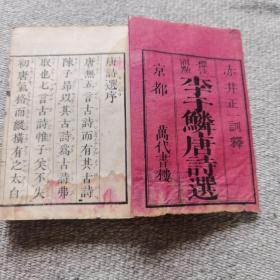 赤井正一訓釋
李于鱗唐詩選
京都 萬代書樓
唐詩選序
唐無五言古詩而有其古詩
陳子昂以其古詩為古詩弗
取也七言古詩惟子美不失
初唐氣格而縱橫有之太白